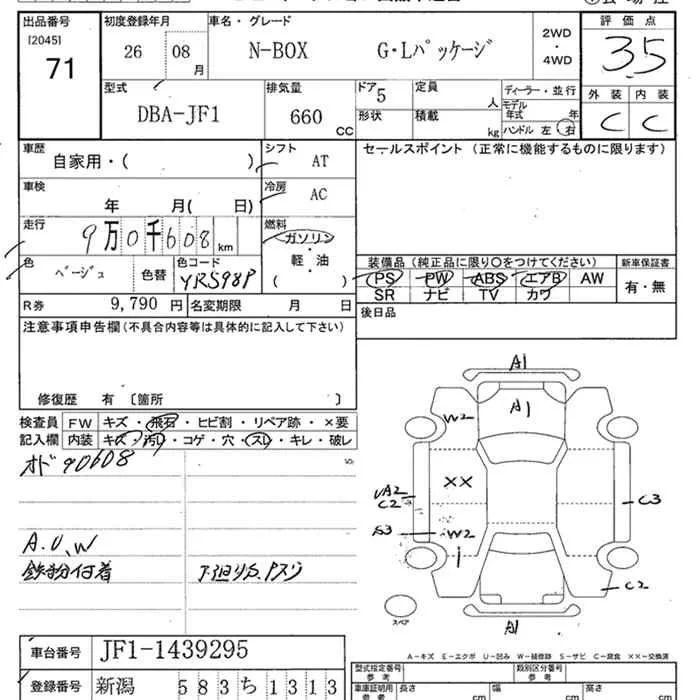 出品番号 初度登録年月 車名・グレード 2WD・4WD 評価点
[2045] 71 26 08月 N-BOX G・Lパッケージ 3.5
型式 排気量 ドア 5 定員 人 ディーラー・並行 外装 内装
DBA-JF1 660 CC 形状 積載 kg モデル年式 年 C C
ハンドル 左 右
車歴 シフト セールスポイント (正常に機能するものに限ります)
自家用・( ) AT
車検 冷房
年 月( 日) AC
走行 燃料
9万0千608 km ガソリン・軽・油
( )
色 色替 色コード 装備品 (純正品に限り○をつけてください) 新車保証書
ベージュ YR598P PS PW ABS エアB AW 有・無
SR ナビ TV カワ
R券 9,790 円 名変期限 月 日 後日品
注意事項申告欄 (不具合内容等は具体的に記入して下さい)
修復歴 有 〔箇所 〕
検査員 FW キズ・飛石・ヒビ割・リペア跡・×要
記入欄 内装 キズ・汚レ・コゲ・穴・スレ・キレ・破レ
オド90608
A.U.W
鉄粉付着 下廻りS.Pスリ
A1
A1
W2
XX
A2
C2
C3
S3
W2
C2
A1
スペア
A-キズ E-エクボ U-凹み W-補修跡 S-サビ C-腐食 ××-交換済
車台番号 JF1-1439295
登録番号 新潟 583ち1313
型式指定番号 参考 類別区分番号 参考
車庫証明用 参考 長さ cm 幅 cm 高さ cm